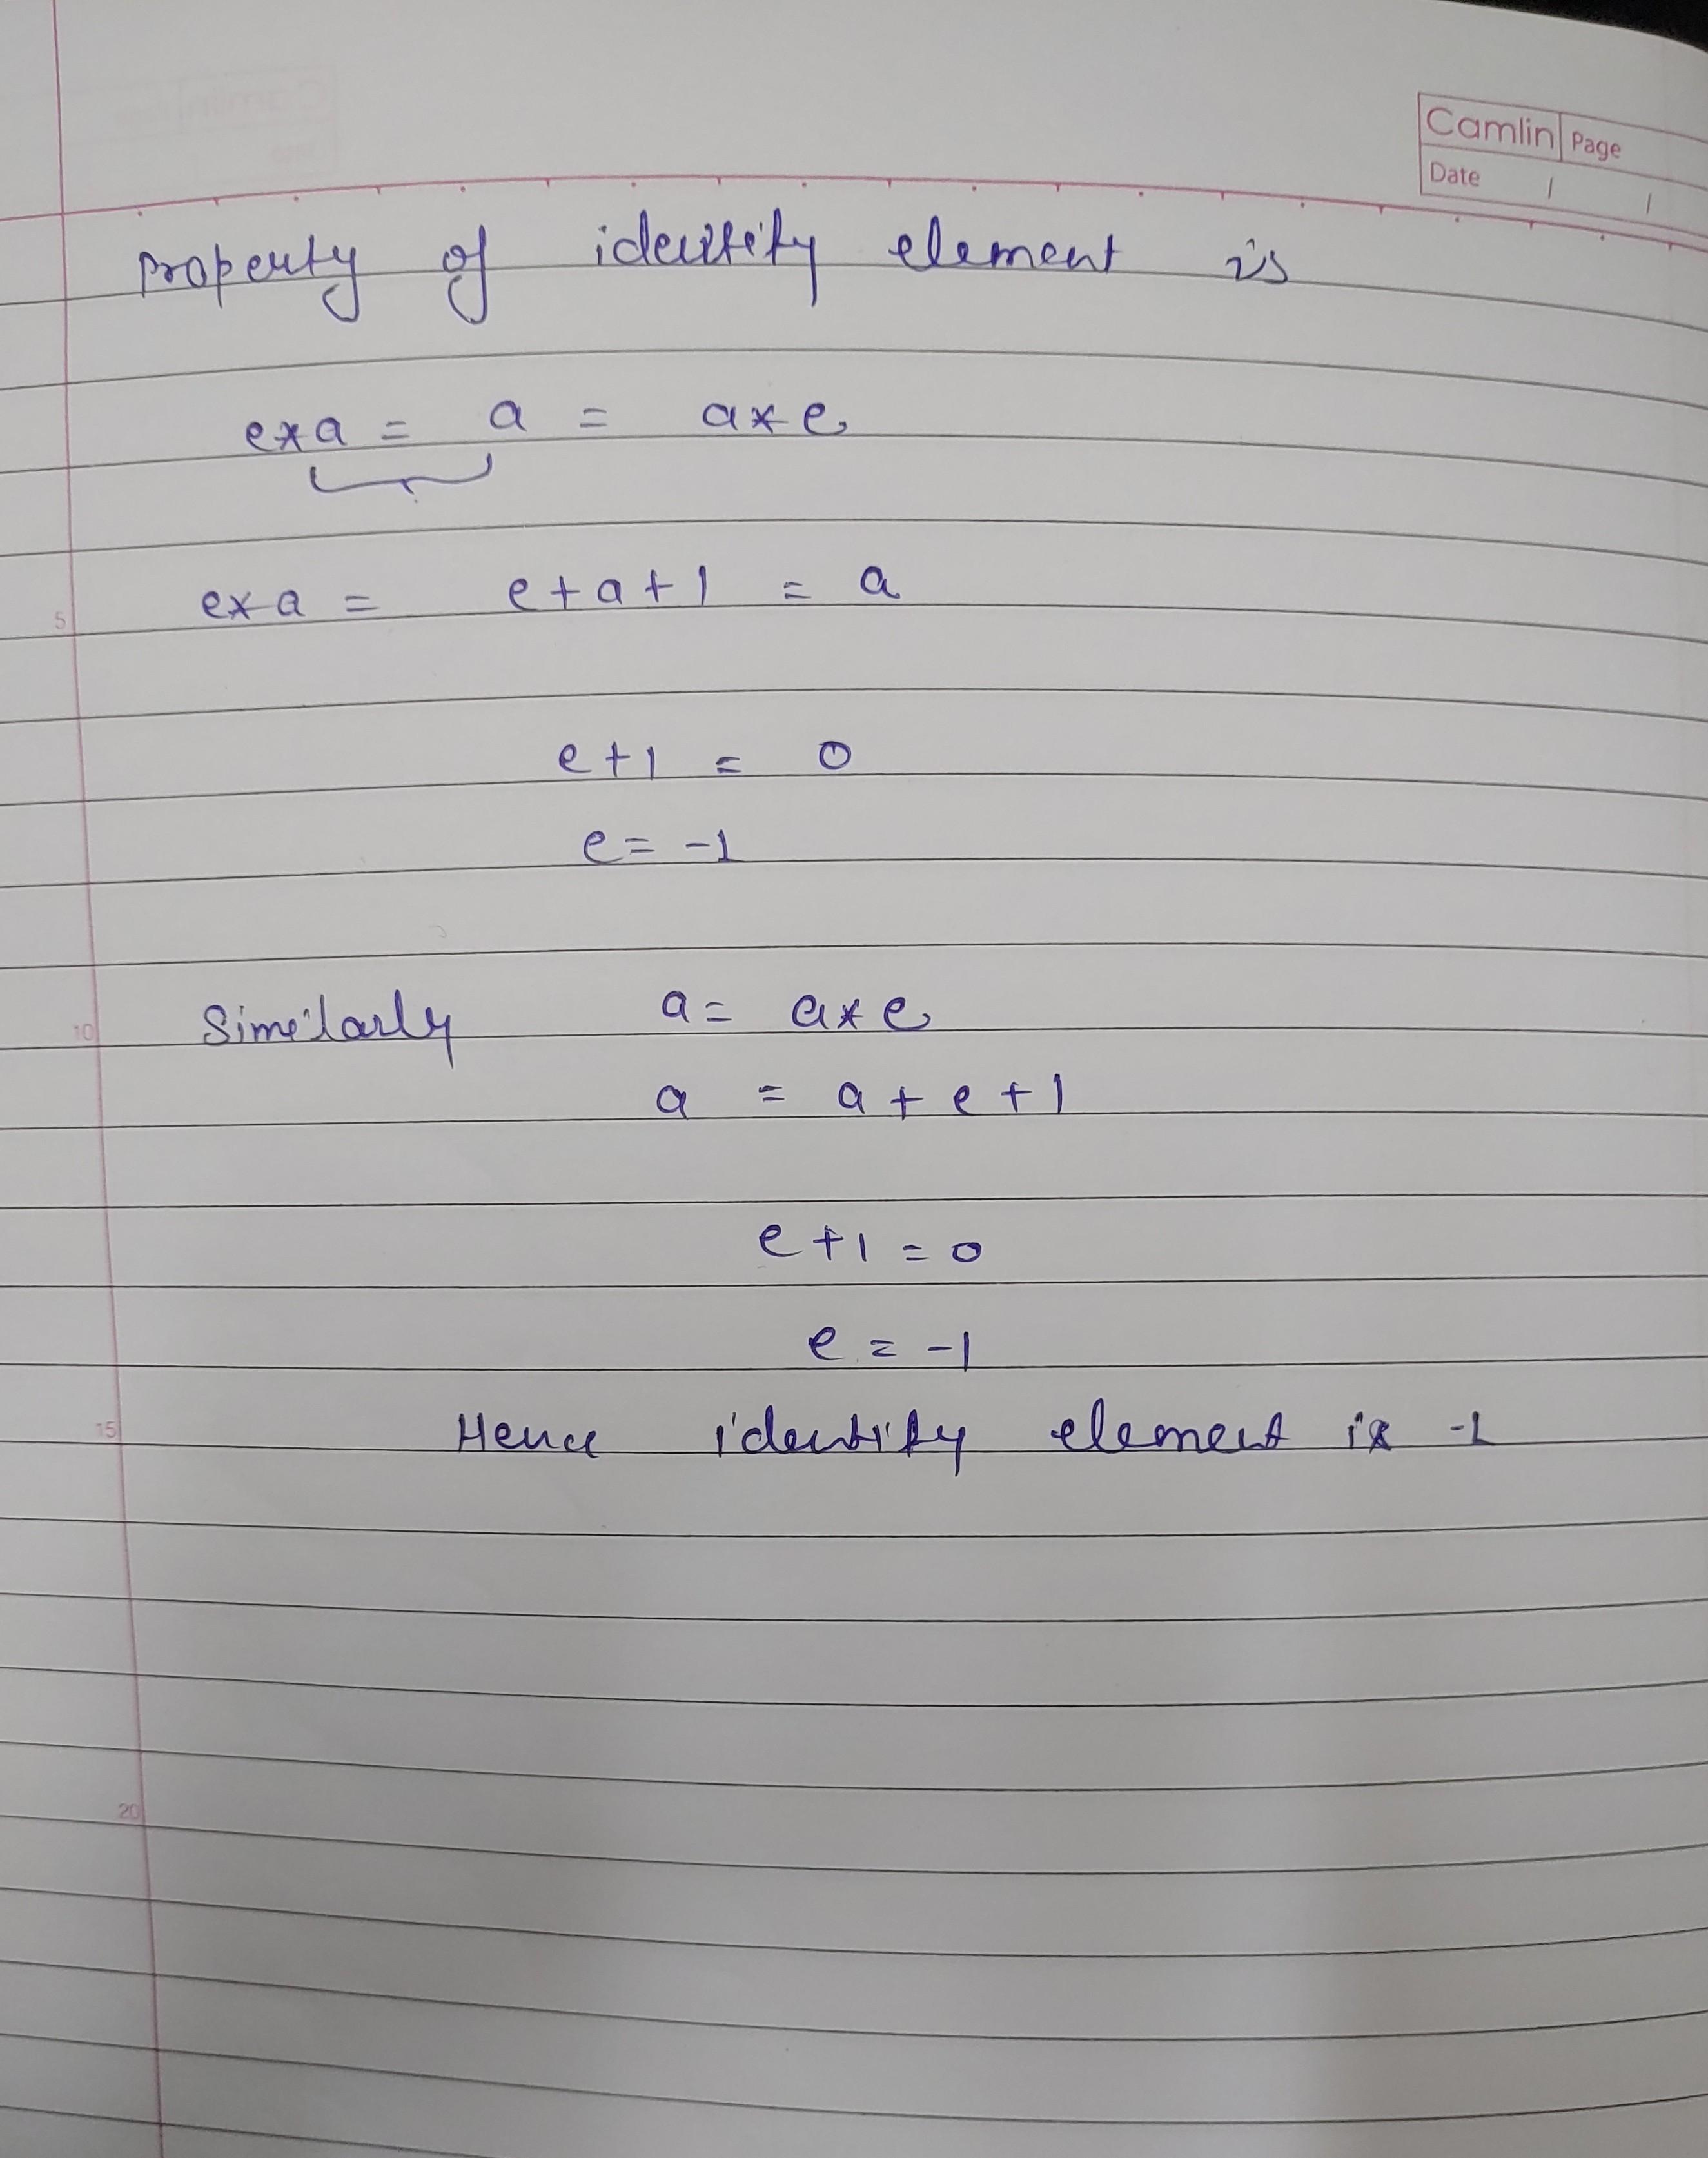 Camlin Page
Date / /
property of identity element is
e*a = a = a*e
e*a = e+a+1 = a
5
e+1 = 0
e = -1
Similarly a = a*e
10
a = a+e+1
e+1 = 0
e = -1
Hence identity element is -1
15
20